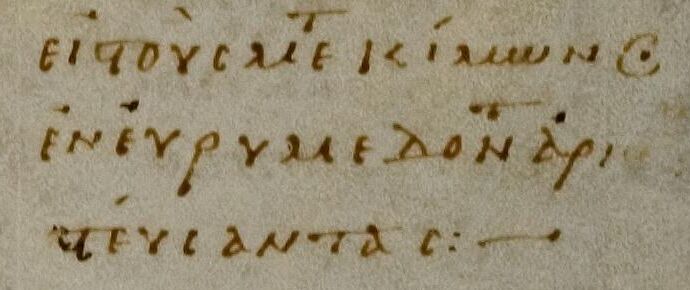 εἰϛοὺς μτε κίμωνος
ἐν εὐρυμέδοντ ἀρι
ϛεύσαντας:—